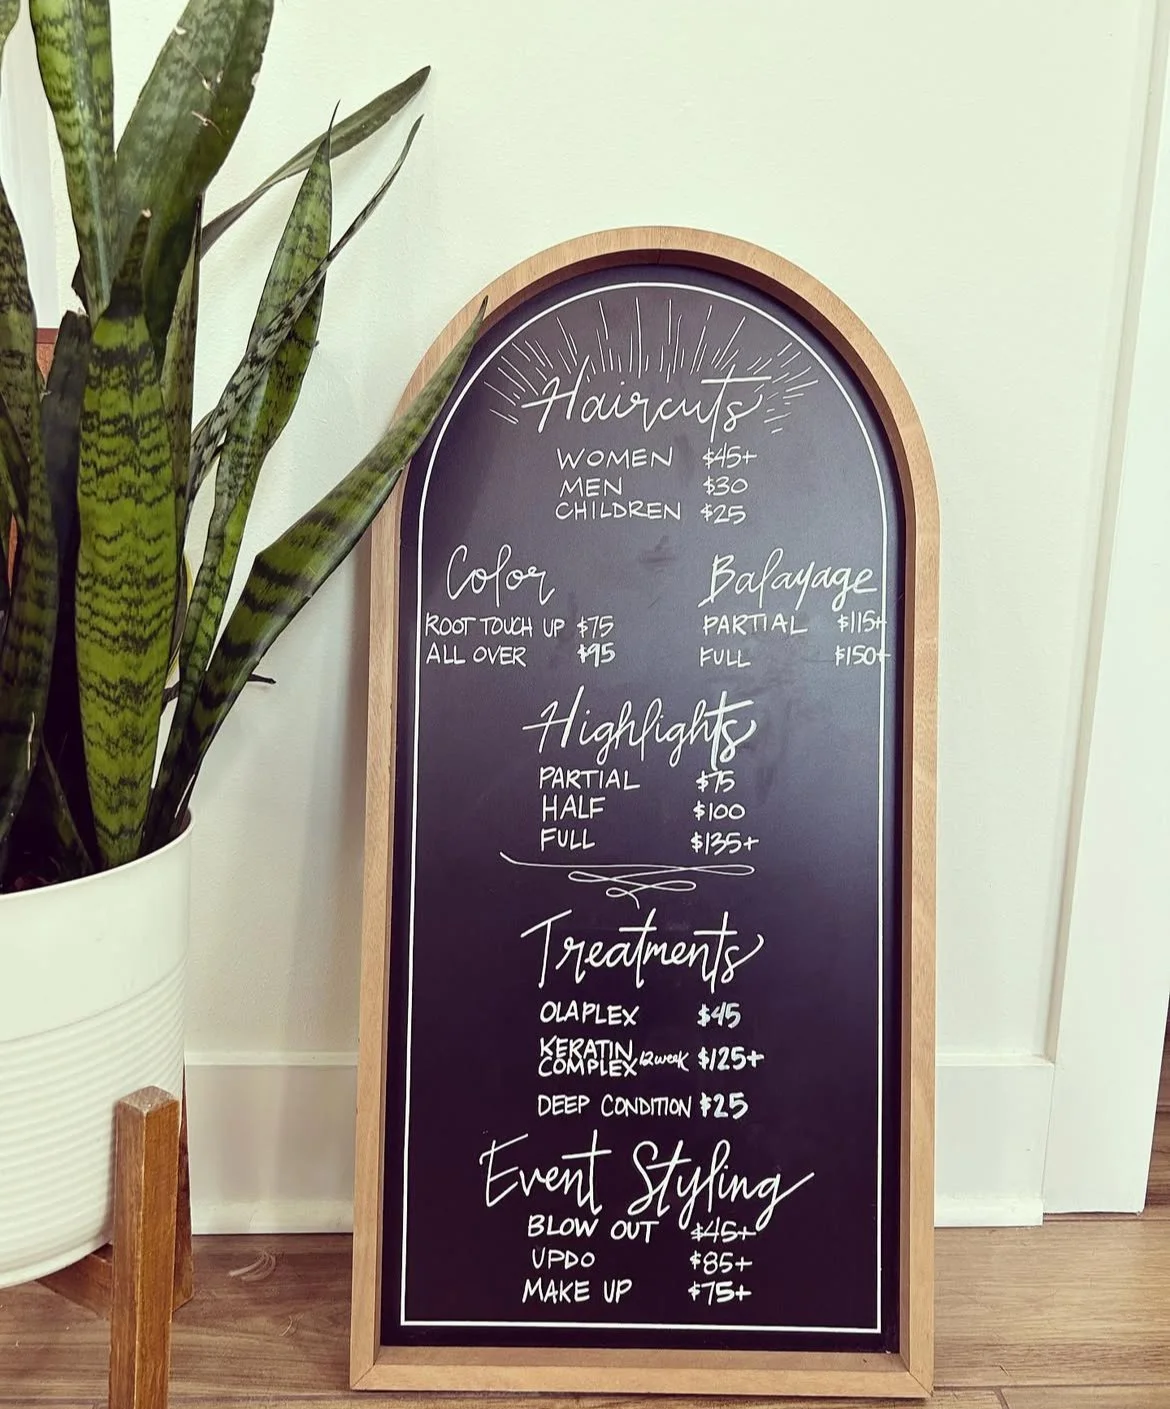 Haircuts
WOMEN $45+
MEN $30
CHILDREN $25
Color
ROOT TOUCH UP $75
ALL OVER $95
Balayage
PARTIAL $115+
FULL $150+
Highlights
PARTIAL $75
HALF $100
FULL $135+
Treatments
OLAPLEX $45
KERATIN
COMPLEX 12 week $125+
DEEP CONDITION $25
Event Styling
BLOW OUT $45+
UPDO $85+
MAKE UP $75+